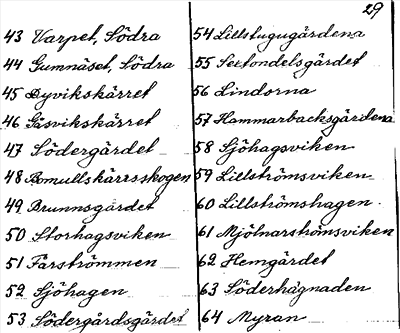 29
43 Varpet, Södra
44 Gumnäset, Södra
45 Dyvikskärret
46 Gåsvikskärret
47 Södergärdet
48 Bomullskärrsskogen
49 Brunnsgärdet
50 Storhagsviken
51 Farströmmen
52 Sjöhagen
53 Södergårdsgärdet
54 Lillstugugärdena
55 Sextondelsgärdet
56 Lindorna
57 Hammarbacksgärdena
58 Sjöhagsviken
59 Lillströmsviken
60 Lillströmshagen
61 Mjölnarströmsviken
62 Hemgärdet
63 Söderhägnaden
64 Myran